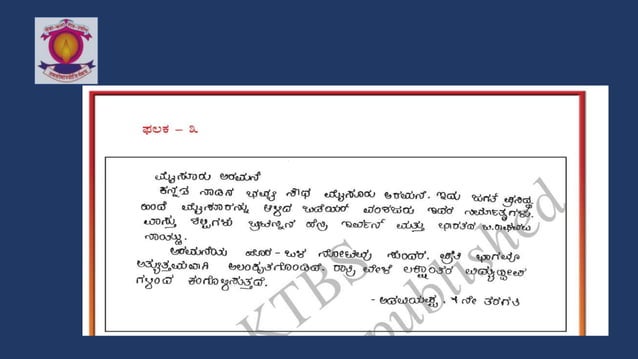 ಫಲಕ – ೩
ಮೈಸೂರು ಅರಮನೆ
ಕನ್ನಡ ನಾಡಿನ ಭವ್ಯ ಸೌಧ ಮೈಸೂರು ಅರಮನೆ. ಇದು ಜಗತ್ ಪ್ರಸಿದ್ಧ
ಹಿಂದೆ ಮೈಸೂರನ್ನು ಆಳಿದ ಒಡೆಯರ್ ವಂಶಜರು ಇದರ ನಿರ್ಮಾತೃಗಳು.
ವಾಸ್ತು ಶಿಲ್ಪಿಗಳು ಬ್ರಿಟನ್ನಿನ ಹೆನ್ರಿ ಇರ್ವಿನ್ ಮತ್ತು ಭಾರತದ
ನಾಯ್ಡು.
ಅರಮನೆಯ ಹೊರ – ಒಳ ನೋಟವು ಸುಂದರ. ಪ್ರತಿ ಭಾಗವೂ
ಅತ್ಯುತ್ತಮವಾಗಿ ಅಲಂಕೃತಗೊಂಡಿದೆ. ರಾತ್ರಿ ವೇಳೆ ಲಕ್ಷಾಂತರ ವಿದ್ಯುದ್ದೀಪ
ಗಳಿಂದ ಕಂಗೊಳಿಸುತ್ತದೆ.
ನೇ ತರಗತಿ
KTBS
published